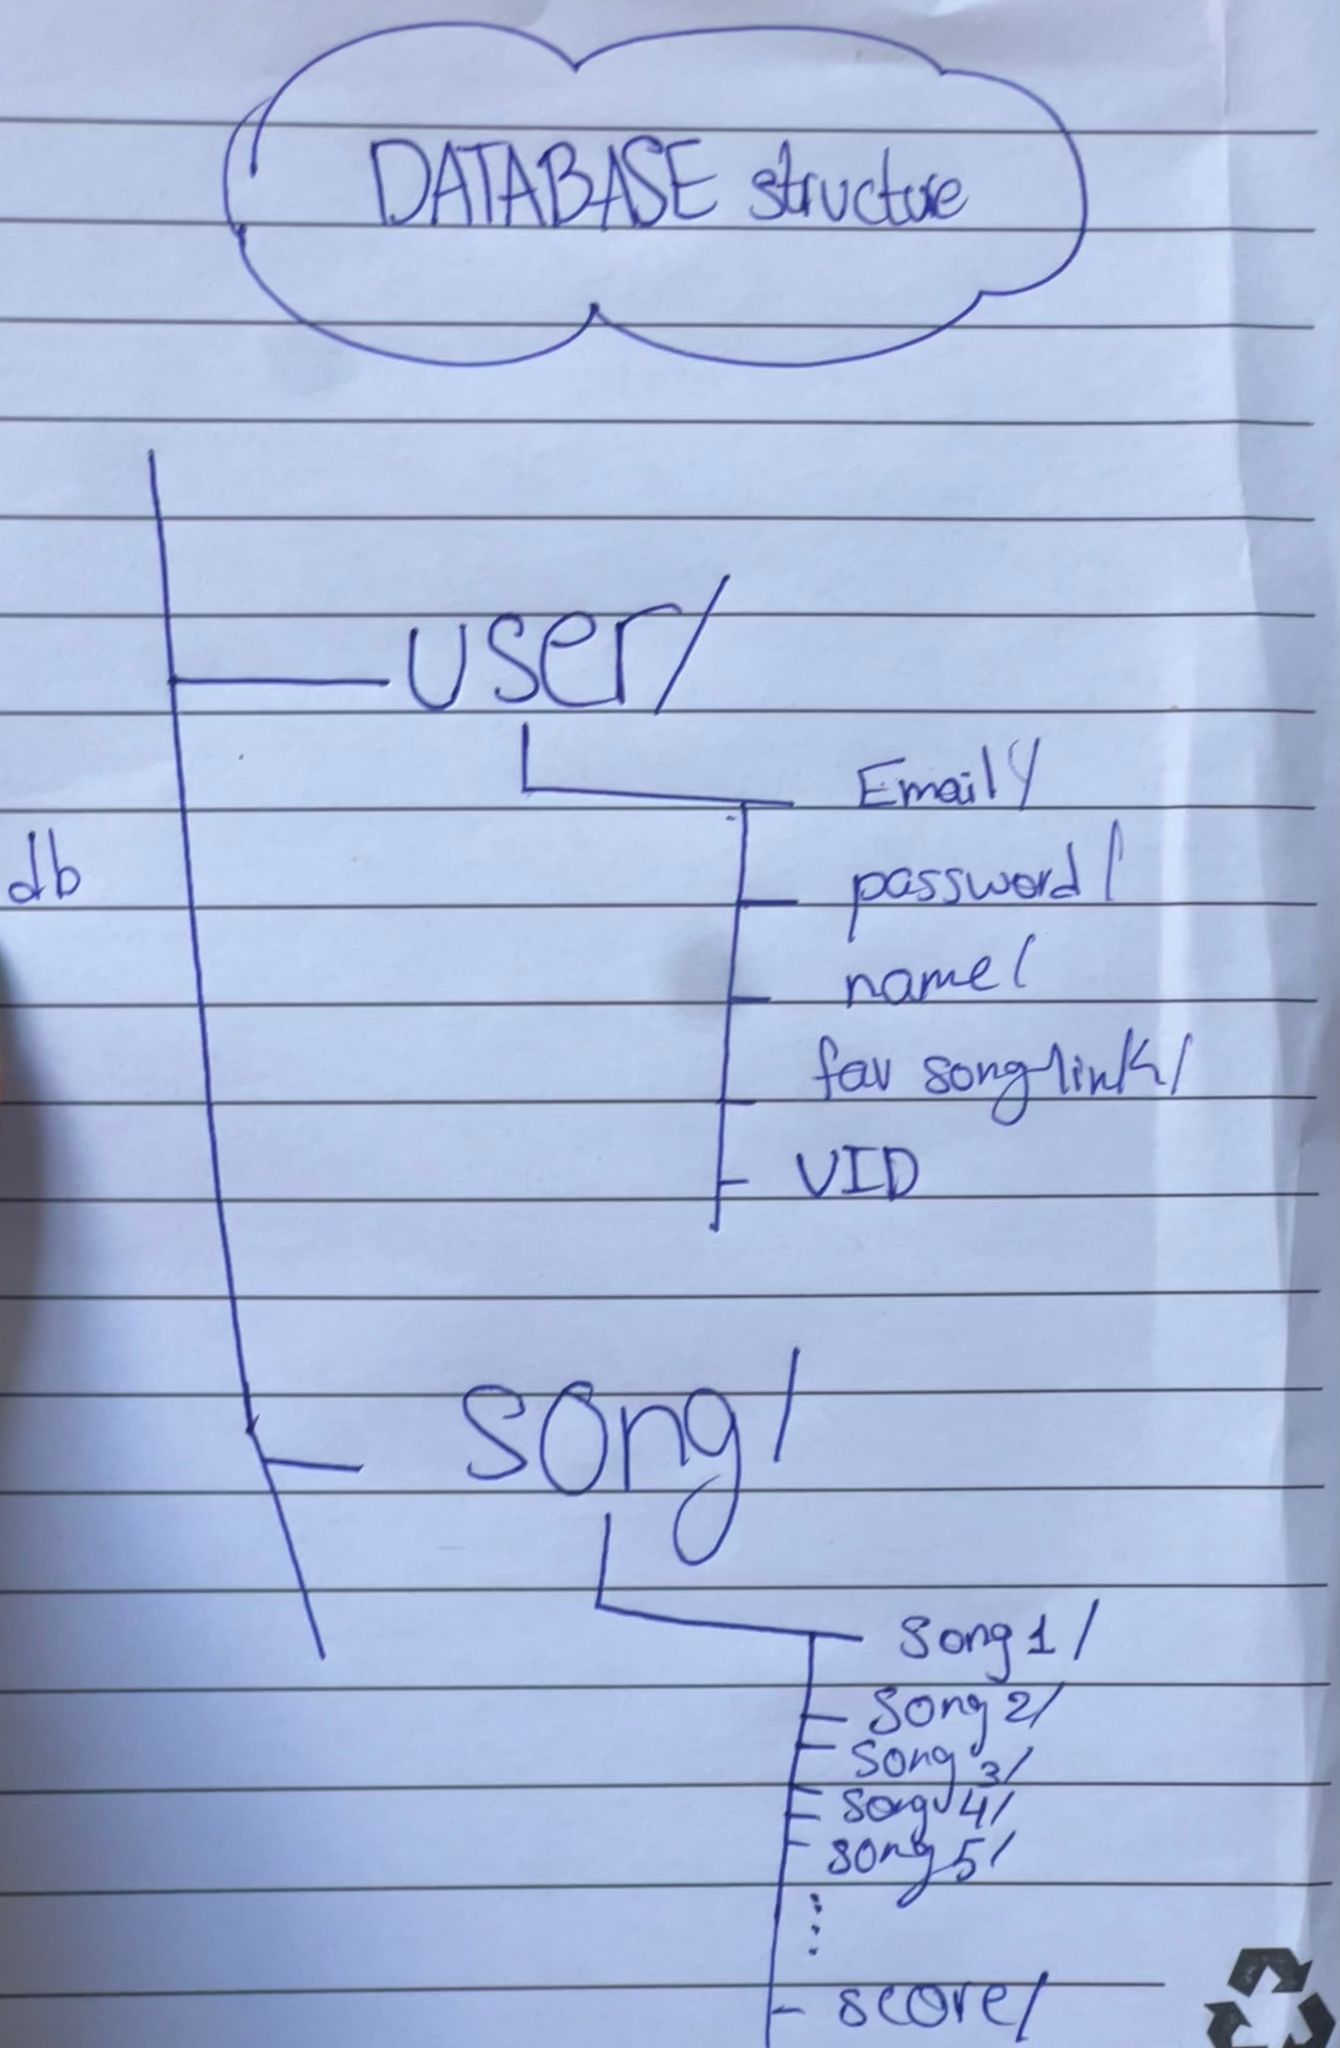 DATABASE structure
user/
Email/
db
password/
name/
fav song link/
UID
song/
song 1/
song 2/
song 3/
song 4/
song 5/
score/